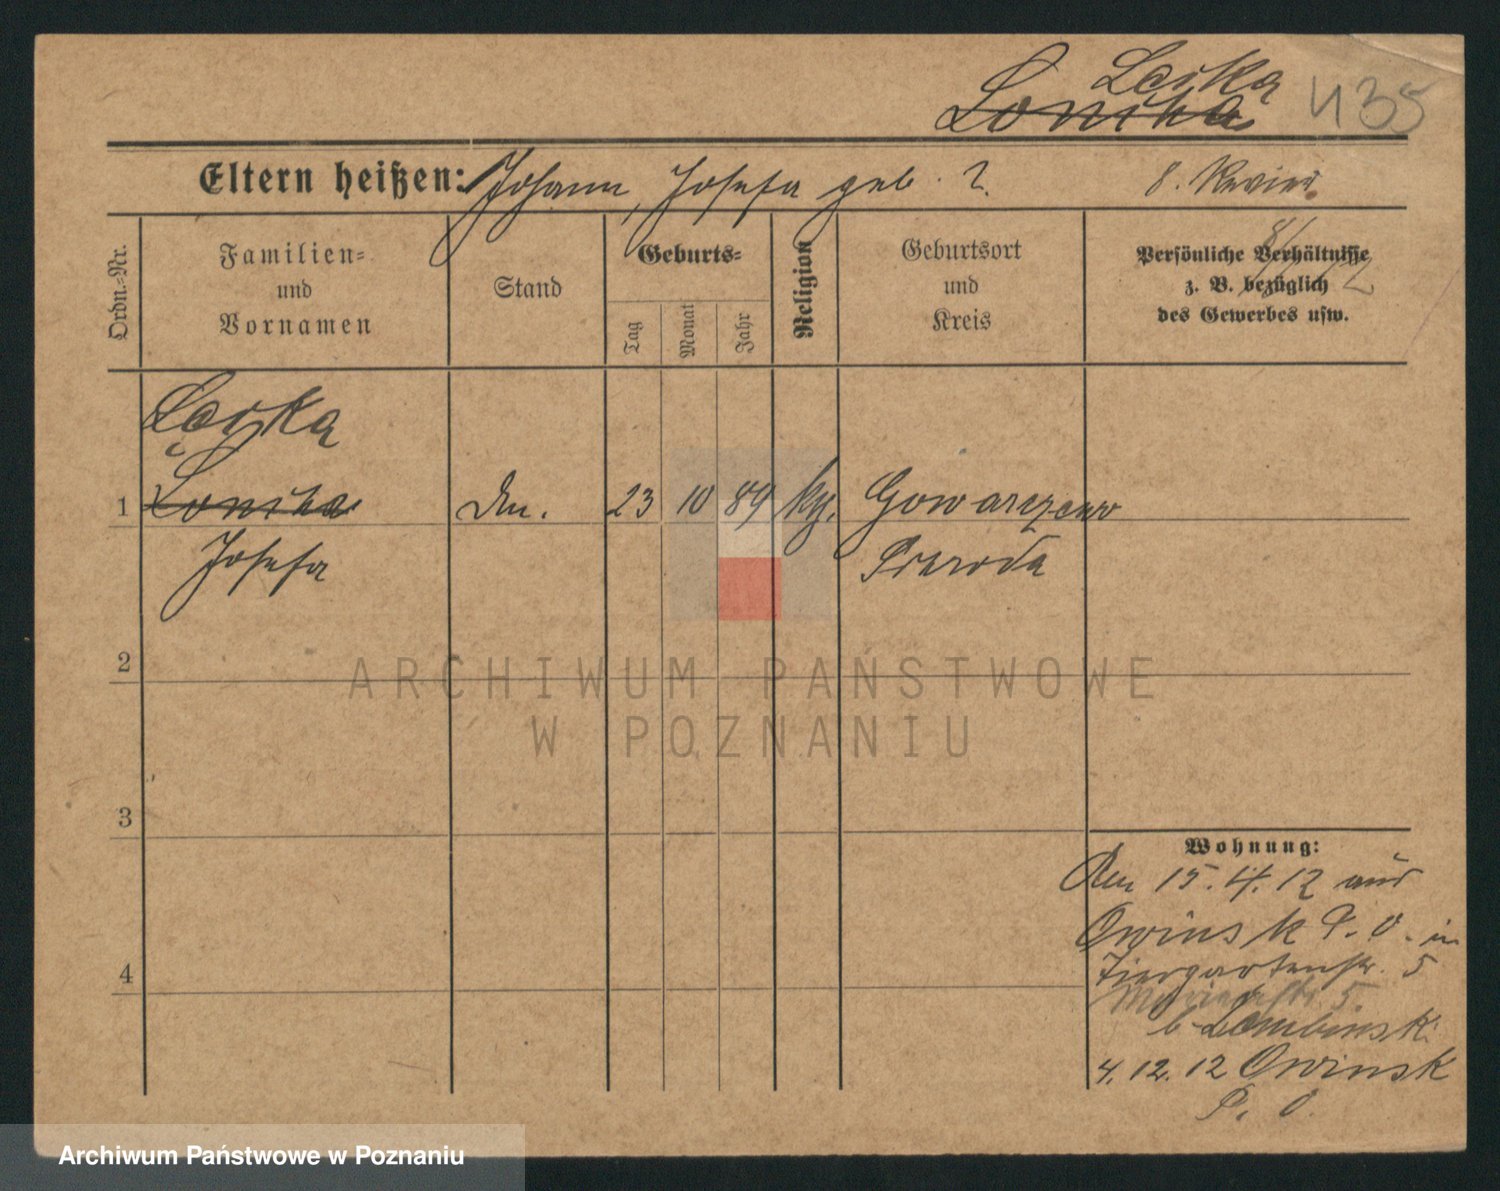 Leika
Lonika
435
Eltern heißen: Johann, Josefa geb. ?
8. Revier
Ordn.-Nr.
Familien-
und
Vornamen
Stand
Geburts-
Tag
Monat
Jahr
Religion
Geburtsort
und
Kreis
Persönliche Verhältnisse
z. B. bezüglich
des Gewerbes usw.
Leika
1 Lonika 23 10 89 Gowarzewo
Josefa Schroda
2
3
4
Wohnung:
Den 15. 4. 12 aus
Owinsk P. O. in
Tiergartenstr. 5
5.
b Dembinski
4. 12. 12 Owinsk
P. O.
ARCHIWUM PAŃSTWOWE
W POZNANIU
Archiwum Państwowe w Poznaniu